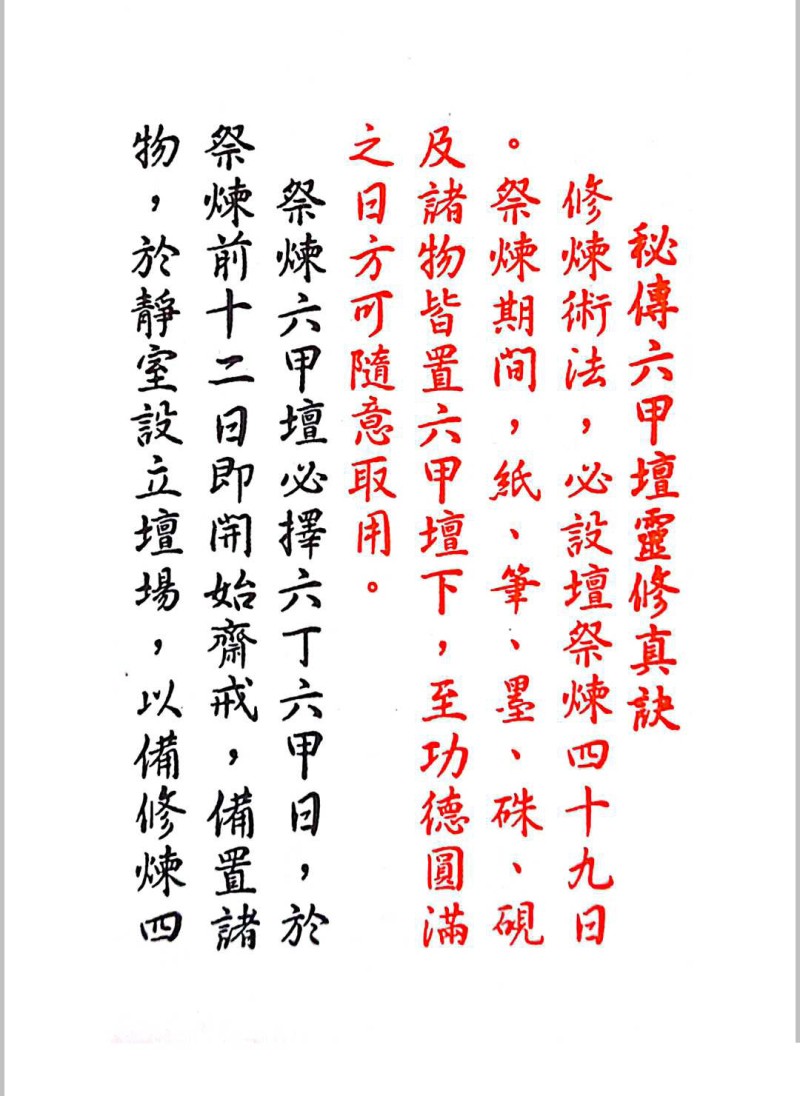 秘傳六甲壇靈修真訣
修煉術法，必設壇祭煉四十九日
。祭煉期間，紙、筆、墨、硃、硯
及諸物皆置六甲壇下，至功德圓滿
之日方可隨意取用。
祭煉六甲壇必擇六丁六甲日，於
祭煉前十二日即開始齋戒，備置諸
物，於靜室設立壇場，以備修煉四